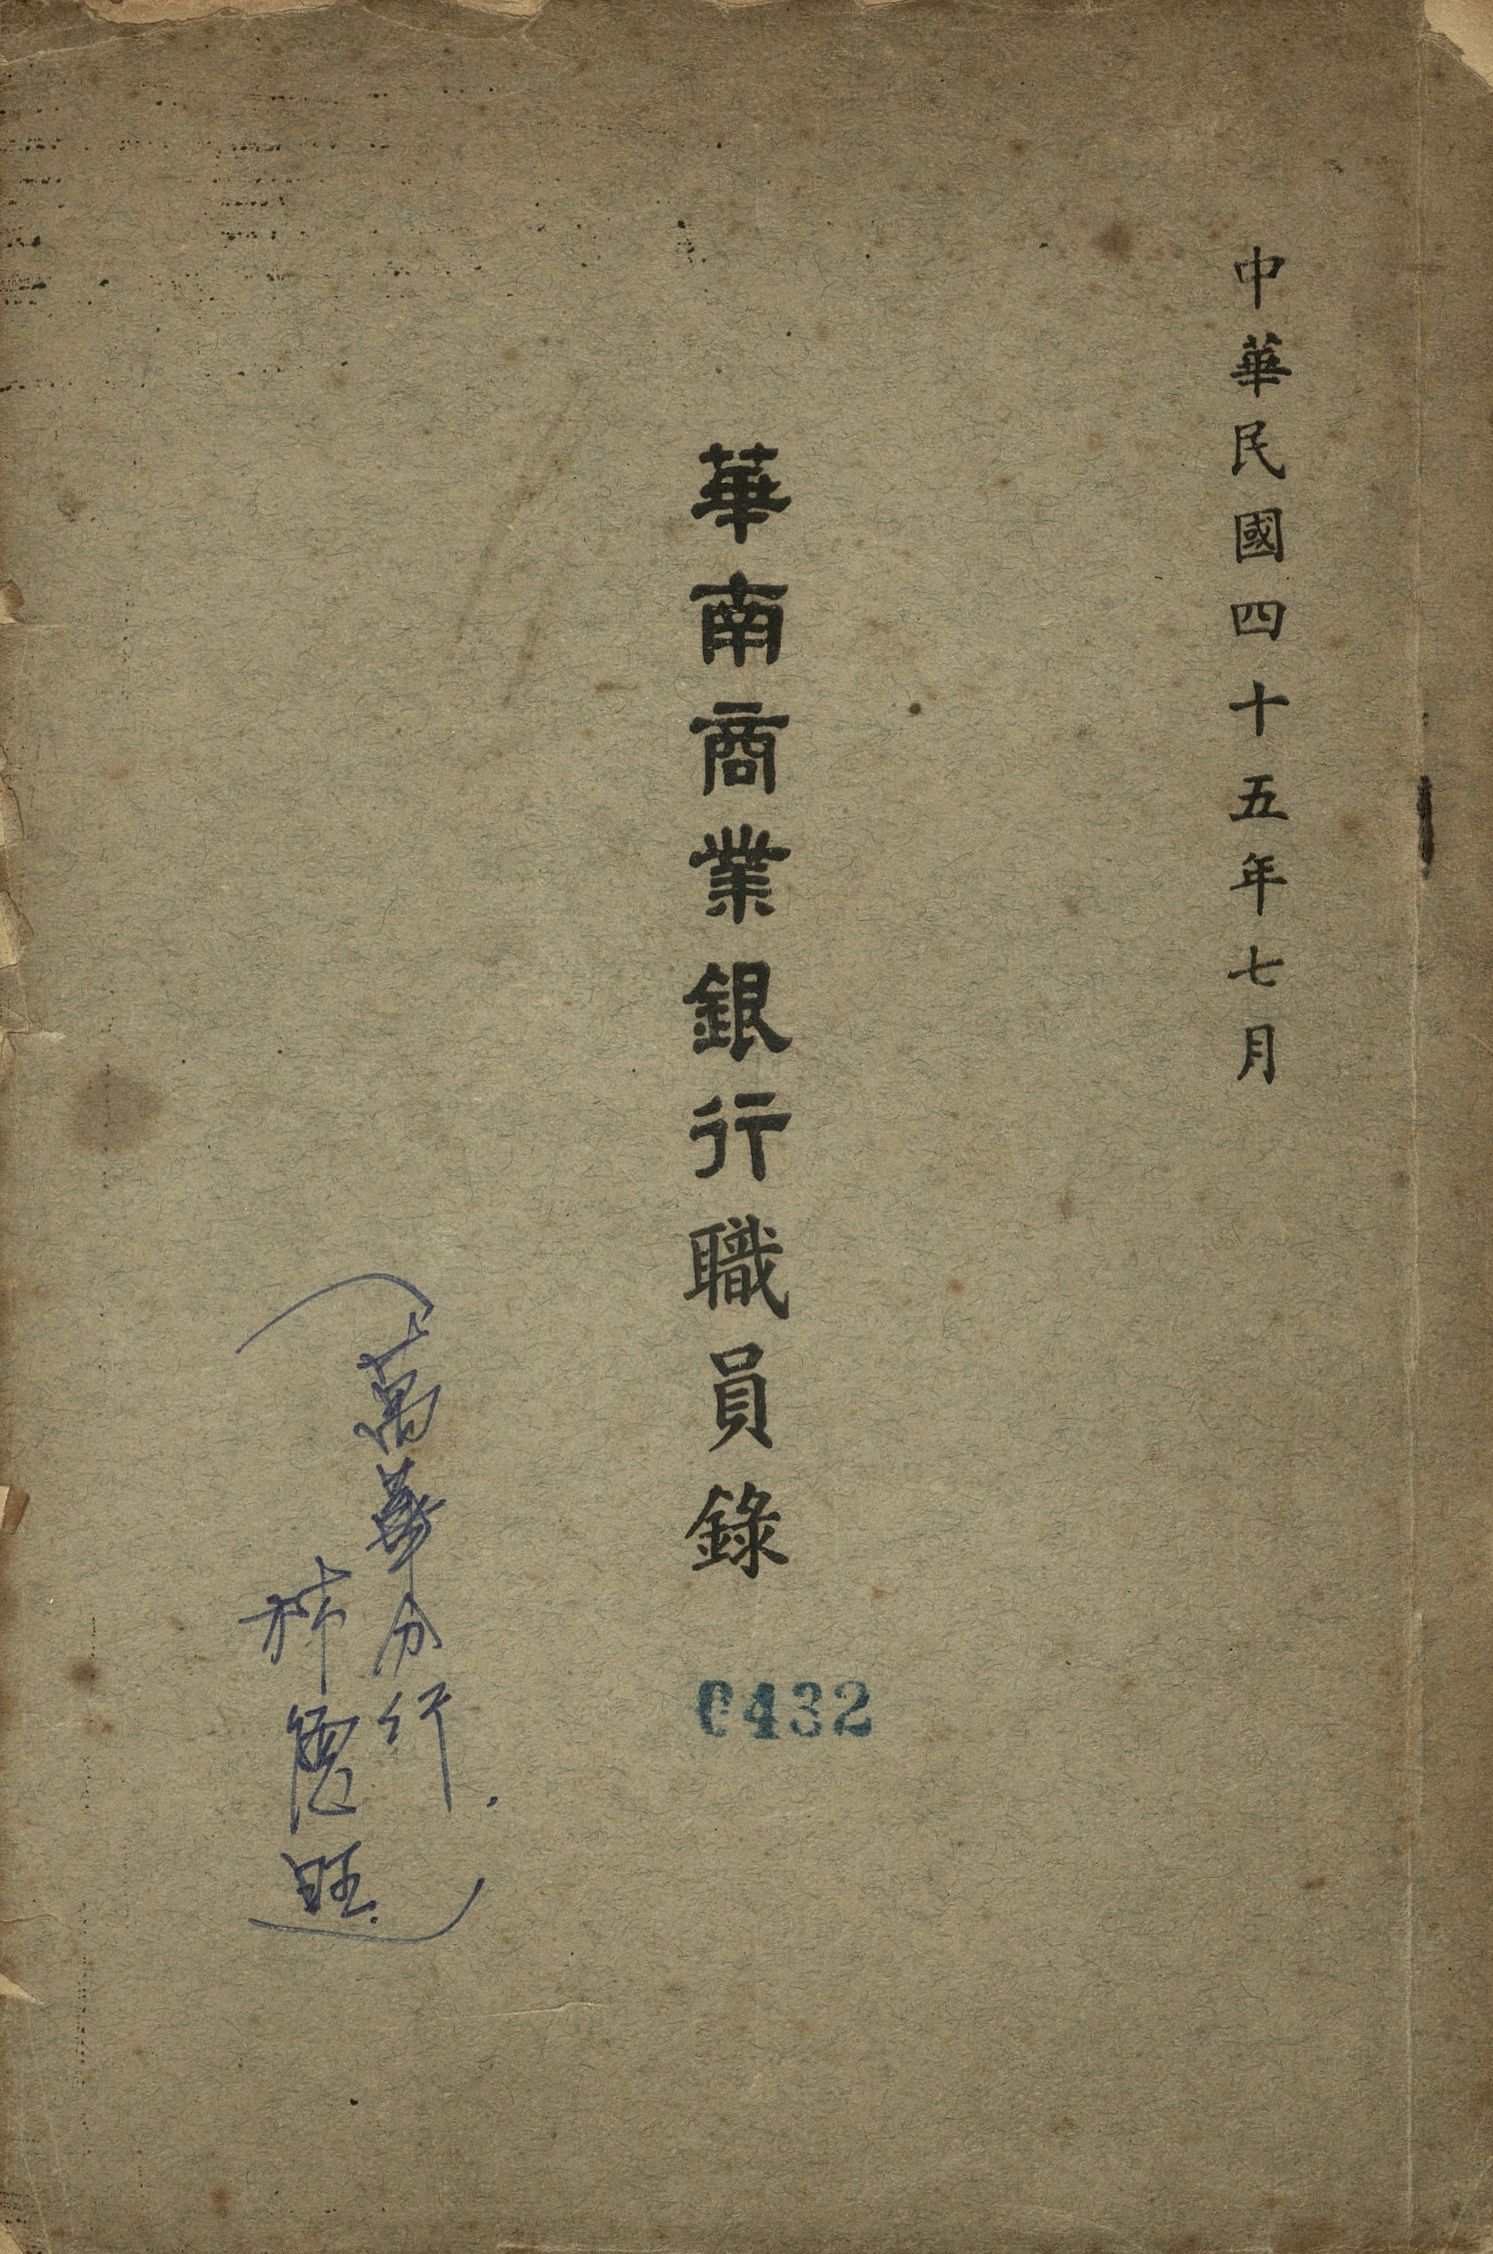 中華民國四十五年七月
華南商業銀行職員錄
0432
萬華分行.
旺